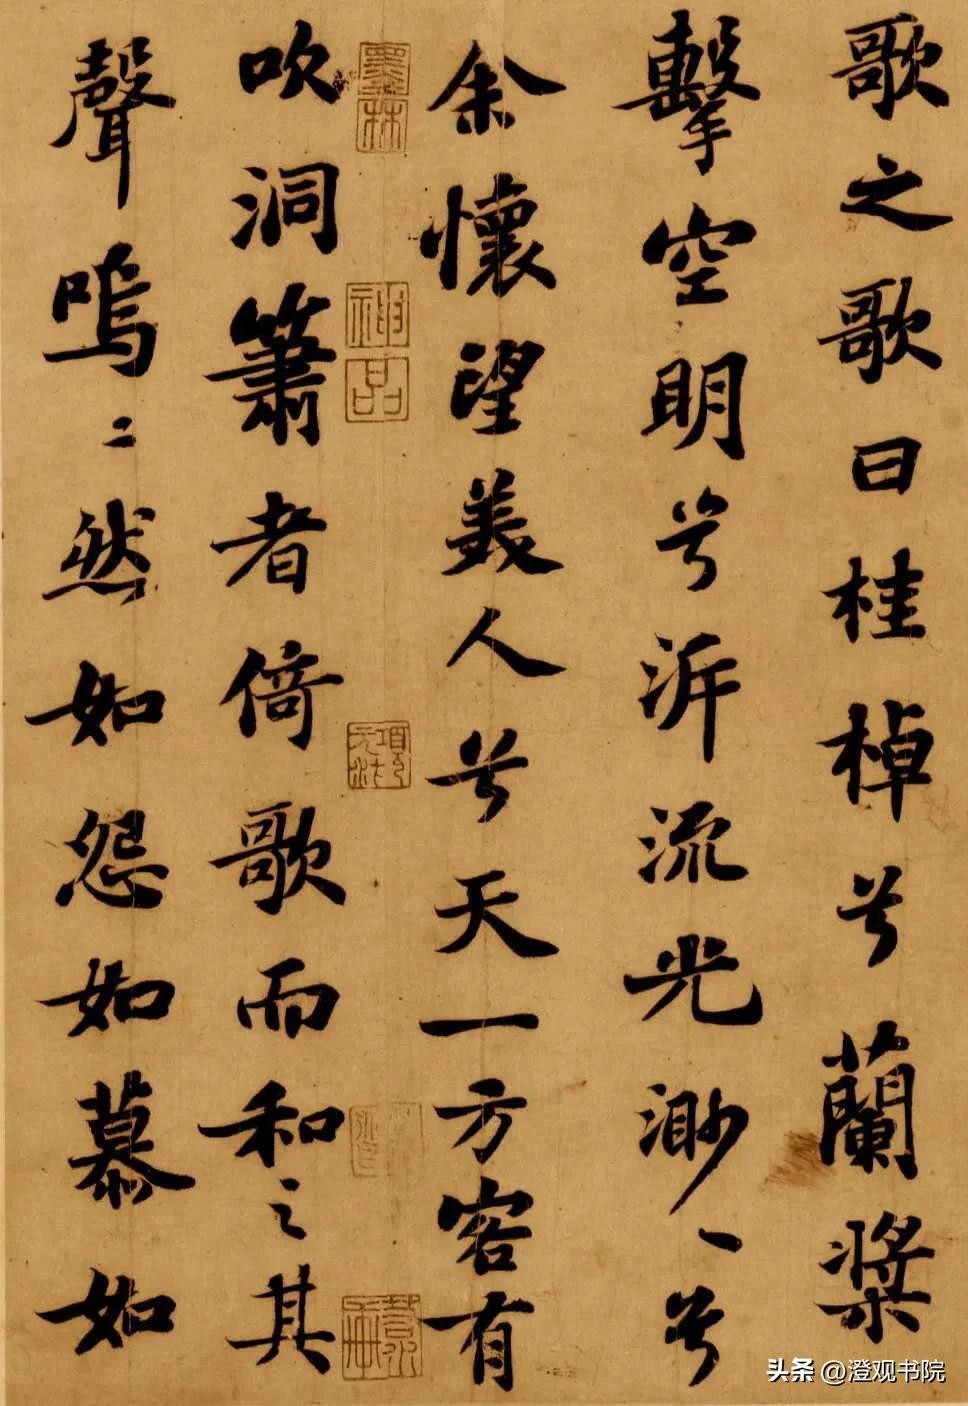 歌之歌曰桂棹兮蘭槳
擊空明兮泝流光渺〻兮
余懷望美人兮天一方客有
吹洞簫者倚歌而和之其
聲嗚〻然如怨如慕如
墨林
神品
項元汴
頭条 @澄观书院